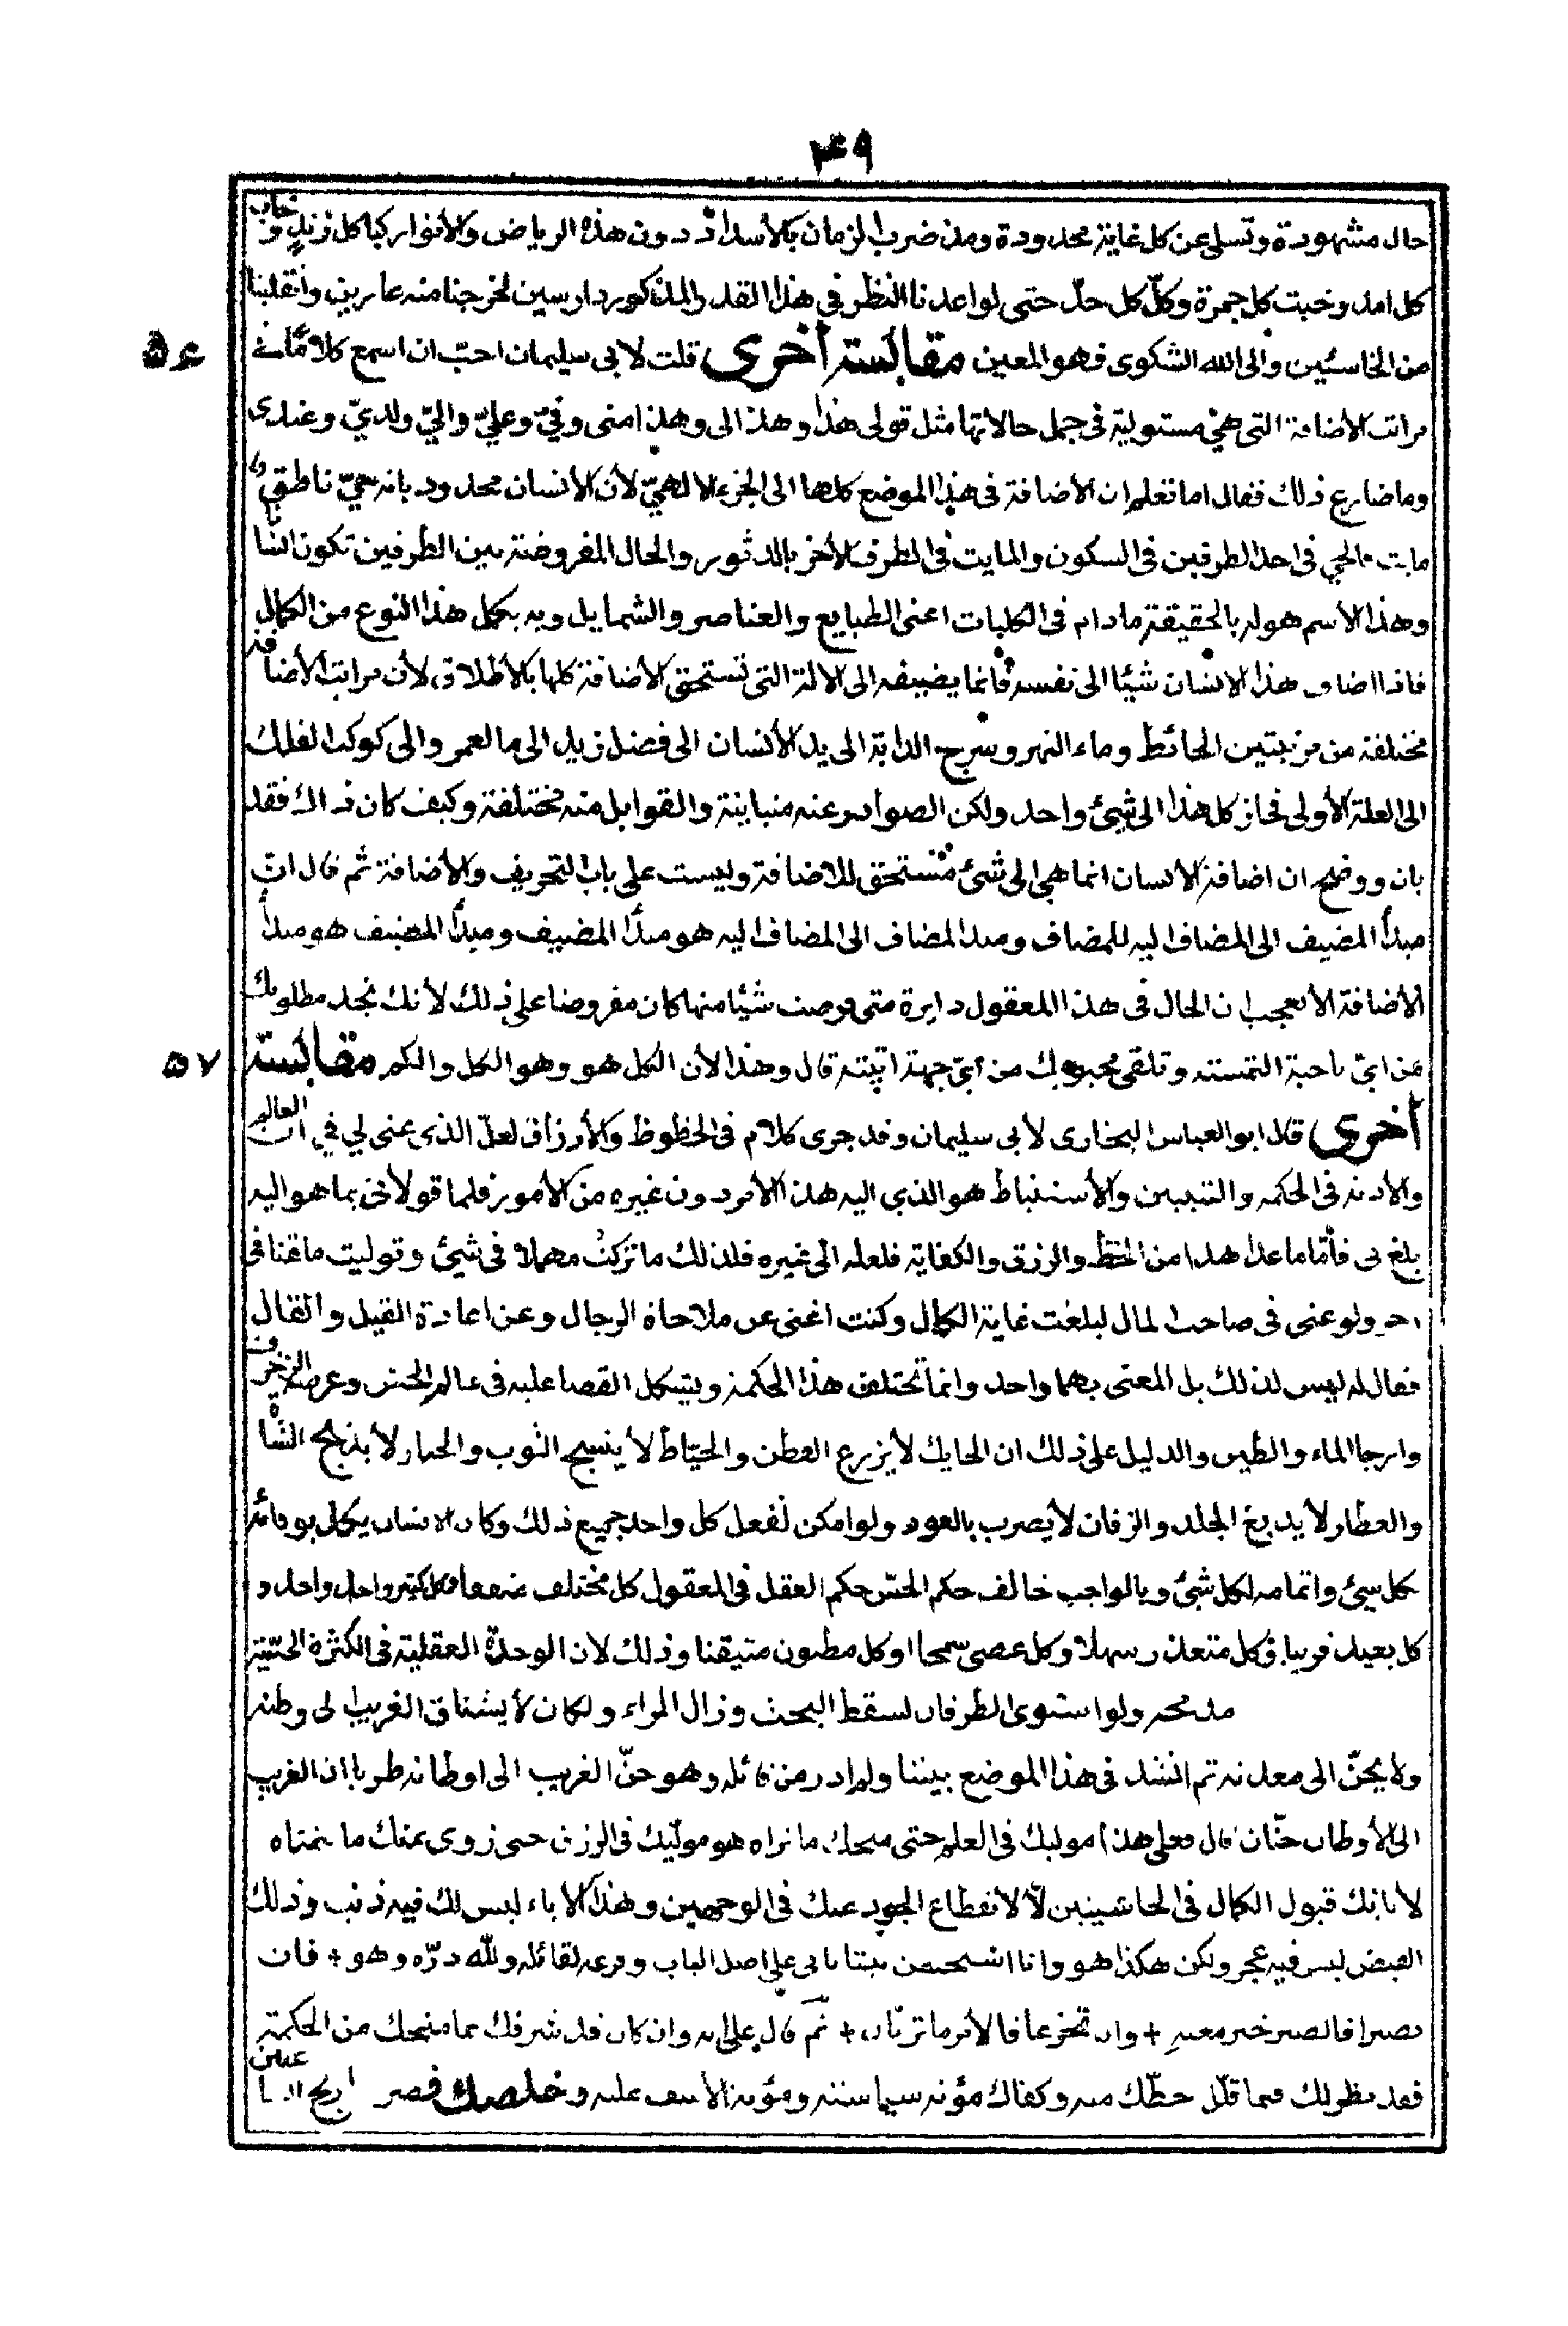 ۴۹
حال مشهودة وتسلى عن كل غاية محدودة ومذ ضرب الزمان بالأسداد دون هذه الرياض والأنوار كبا كل زند وخاب
كل امل وخبت كل جمرة وكلّ كل حدّ حتى لو اعدنا النظر فى هذا القدر المذكور دارسين لخرجنا منه عارين وانقلبنا
من الخاسئين والى الله الشكوى فهو المعين مقابسة أخرى قلت لابى سليمان احبّ ان اسمع كلاماً فى
۵۶
مراتب الأضافة التى هى مستولية فى جمل حالاتها مثل قولى هذا وهذا لى وهذا منى وفىّ وعلىّ والىّ ولدىّ وعندى
وما ضارع ذلك فقال اما تعلم ان الأضافة فى هذا الموضع كلها الى الجزء الالهىّ لأن الأنسان محدود بانه حىّ ناطق
مايت فالحى فى احد الطرفين فى السكون والمايت فى الطرف الأخر بالدثور والحال المفروضة بين الطرفين تكون انسانا
وهذا الأسم هو له بالحقيقة ما دام فى الكليات اعنى الطبايع والعناصر والشمايل وبه يكمل هذا النوع من الكمال
فاذا اضاف هذا الانسان شيئا الى نفسه فانما يضيفه الى الالة التى تستحق الأضافة كلها بالأطلاق لأن مراتب الأضافة
مختلفة من مزيتين الحائط وماء النهر وسرج الدابة الى يد الأنسان الى فضل زيد الى مال عمر والى كوكب الفلك
الى العلة الأولى فجاز كل هذا الى شئ واحد ولكن الصوادر عنه متباينة والقوابل منه مختلفة وكيف كان ذاك فقد
بان ووضح ان اضافة الانسان انما هى الى شئ مستحق للاضافة وليست على باب التحريف والأضافة ثم قال ان
مبدأ المضيف الى المضاف اليه للمضاف ومبدا المضاف الى المضاف اليه هو مبدأ المضيف ومبدأ المضيف هو مبدأ
الأضافة الا تعجب ان الحال فى هذا المعقول دايرة متى فرضت شيئا منها كان مفروضا على ذلك لأنك تجد مطلوبك
من اىّ ناحية التمسته وتلقى محبوبك من اىّ جهة اتيته قال وهذا لأن الكل هو وهو الكل والكم مقابسة
۵۷
أخرى قال ابو العباس البخارى لأبى سليمان وقد جرى كلام فى الحظوظ والأرزاق لعلّ الذى عنى لي في العالم
والأدنه فى الحكمه والتبيين والأستنباط هو الذى اليه هذا الأمر دون غيره من الأمور فلما قولاى بما هو اليه
بلغ بى فأمّا ما عدا هذا من الحظ والرزق والكفاية فلعله الى غيره فلذلك ما تركتُ مهملا فى شيئ وتوليت ماقنا فى
ولو عنى فى صاحب المال لبلغت غاية الكمال وكنت اغنى عن ملاحاة الرجال وعن اعادة القيل والقال
فقال له ليس لذلك بل المعنى بهما واحد وانما تختلف هذا الحكمة ويتشكل القضا عليه فى عالم الحس وعرصة الزخرف
وارجا الماء والطين والدليل على ذلك ان الحايك لأ يزرع القطن والخيّاط لأ ينسج الثوب والخباز لأ يذبح الشاة
والعطار لأ يدبغ الجلد والزفان لأ يضرب بالعود ولو امكن لفعل كل واحد جميع ذلك وكان الانسان يكمل بوفائه
كل شيئ واتمامه لكل شئ وبالواجب خالف حكم الحسّ حكم العقل فى المعقول كل مختلف متفقا وكل كثير واحدا واحد و
كل بعيد قريبا وكل متعذر سهلا وكل عصى سمحا وكل مظنون متيقنا وذلك لان الوحدة العقلية فى الكثرة الحسّية
ولو استوى الطرفان لسقط البحث وزال المراء ولكان لأ يشتاق الغريب الى وطنه
ولا يحنّ الى معدنه ثم انشد فى هذا الموضع بيتنا ولم ادر من قائله وهو حنّ الغريب الى اوطانه طربا ان الغريب
الى الأوطان حنّان قال فعلى هذا موليك فى العلم حتى منحك ما نراه هو مولّيك فى الرزق حتى زوى عنك ما تتمناه
لأ نابك قبول الكمال فى الحاشيتين لأ لانقطاع الجود عنك فى الوجهين وهذا الاباء ليس لك فيه ذنب وذلك
الفيض ليس فيه عجز ولكن هكذا هو وانا استحسن بيتا يأتى على اصل الباب وفرعه لقائله ولله درّه وهو + فان
تصبرا فالصبر خير مغبة + وان تجزعا فالأمر ما تريان + ثم قال على انه وان كان قد شرفك بما منحك من الحكمة
فقد نظر لك فيما قلّل حظّك منه وكفاك مؤنة سياسته ومؤنة الأسف عليه وخلصك فصر